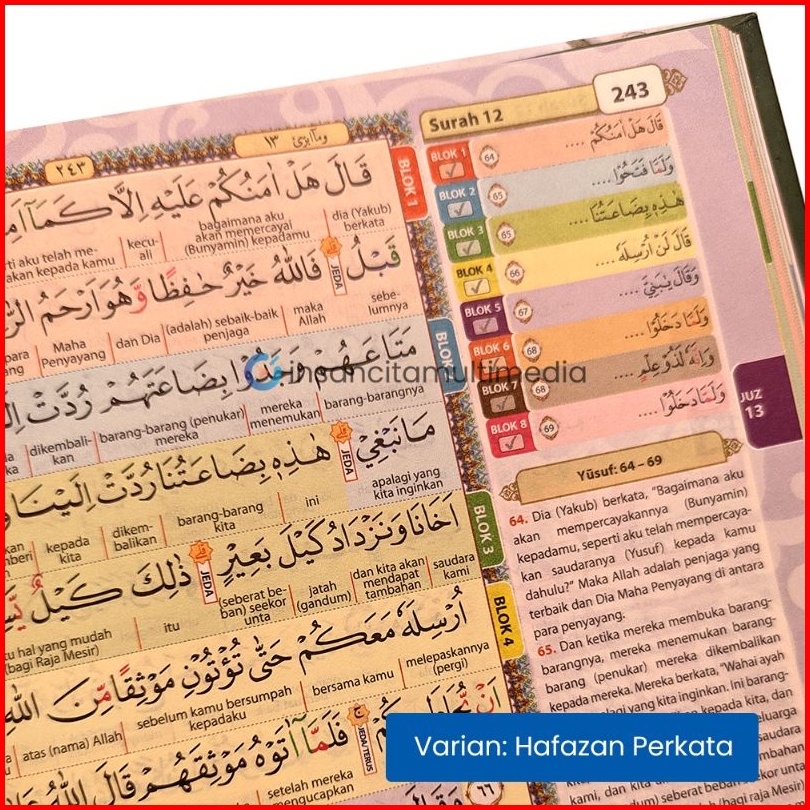 243
Surah 12
٢٤٣
وَمَآ اُبَرِّئُ ١٣
BLOK 1
64
قَالَ هَلْ اٰمَنُكُمْ ....
BLOK 2
65
وَلَمَّا فَتَحُوْا ....
BLOK 3
65
هٰذِهٖ بِضَاعَتُنَا ....
BLOK 4
66
قَالَ لَنْ اُرْسِلَهٗ ....
BLOK 5
67
وَقَالَ يٰبَنِيَّ ....
BLOK 6
68
وَلَمَّا دَخَلُوْا ....
BLOK 7
68
وَاِنَّهٗ لَذُوْ عِلْمٍ ....
BLOK 8
69
وَلَمَّا دَخَلُوْا ....
JUZ
13
BLOK 1
قَالَ هَلْ اٰمَنُكُمْ عَلَيْهِ اِلَّا كَمَآ
dia (Yakub) berkata
bagaimana aku akan mempercayai (Bunyamin) kepadamu
kecu-ali
aku telah me-
akan kepada kamu
قَبْلُ ۗ فَاللّٰهُ خَيْرٌ حٰفِظًا وَّهُوَ اَرْحَمُ
JEDA
sebe-lumnya
maka Allah
(adalah) sebaik-baik penjaga
dan Dia
Maha Penyayang
BLOK
مَتَاعَهُمْ وَجَدُوْا بِضَاعَتَهُمْ رُدَّتْ
barang-barangnya
mereka menemukan
barang-barang (penukar) mereka
dikembali-kan
مَا نَبْغِيْ ۗ هٰذِهٖ بِضَاعَتُنَا رُدَّتْ اِلَيْنَا
JEDA
apalagi yang kita inginkan
ini
barang-barang kita
dikem-balikan
kepada kita
BLOK 3
اَخَانَا وَنَزْدَادُ كَيْلَ بَعِيْرٍ ۗ ذٰلِكَ كَيْلٌ
JEDA
saudara kami
dan kita akan mendapat tambahan
jatah (gandum)
(seberat be-ban) seekor unta
itu
hal yang mudah (bagi Raja Mesir)
BLOK 4
اُرْسِلَهٗ مَعَكُمْ حَتّٰى تُؤْتُوْنِ مَوْثِقًا مِّنَ اللّٰهِ
melepaskannya (pergi)
bersama kamu
sebelum kamu bersumpah kepadaku
atas (nama) Allah
فَلَمَّآ اٰتَوْهُ مَوْثِقَهُمْ قَالَ اللّٰهُ
JEDA/TERUS
setelah mereka mengucapkan
٦٦
Yūsuf: 64 – 69
64. Dia (Yakub) berkata, "Bagaimana aku
akan mempercayakannya (Bunyamin)
kepadamu, seperti aku telah mempercaya-
kan saudaranya (Yusuf) kepada kamu
dahulu?" Maka Allah adalah penjaga yang
terbaik dan Dia Maha Penyayang di antara
para penyayang.
65. Dan ketika mereka membuka barang-
barangnya, mereka menemukan barang-
barang (penukar) mereka dikembalikan
kepada mereka. Mereka berkata, "Wahai ayah
lagi yang kita inginkan. Ini barang-
kepada kita, dan
keluarga
saudara
kami, dan kita
seberat beban seekor unta
bagi raja Mesir)
insancitamultimedia
Varian: Hafazan Perkata